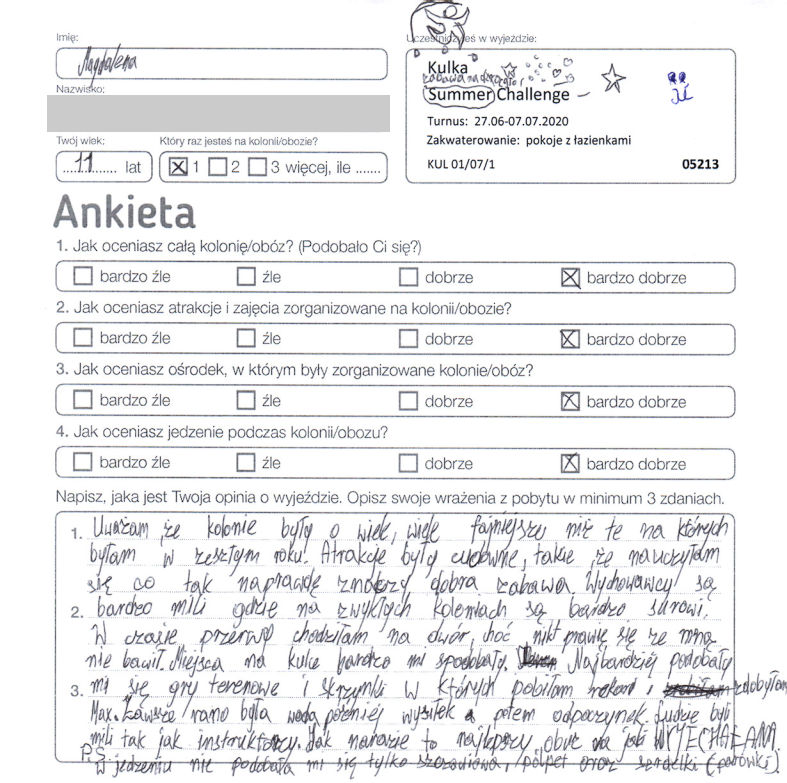 Imię:
Magdalena
Nazwisko:
Twój wiek:
Który raz jesteś na kolonii/obozie?
11 lat
1 2 3 więcej, ile .......
Uczestniczyłeś w wyjeździe:
Kulka
zabawa na
Summer Challenge
Turnus: 27.06-07.07.2020
Zakwaterowanie: pokoje z łazienkami
KUL 01/07/1
05213
Ankieta
1. Jak oceniasz całą kolonię/obóz? (Podobało Ci się?)
bardzo źle źle dobrze bardzo dobrze
2. Jak oceniasz atrakcje i zajęcia zorganizowane na kolonii/obozie?
bardzo źle źle dobrze bardzo dobrze
3. Jak oceniasz ośrodek, w którym były zorganizowane kolonie/obóz?
bardzo źle źle dobrze bardzo dobrze
4. Jak oceniasz jedzenie podczas kolonii/obozu?
bardzo źle źle dobrze bardzo dobrze
Napisz, jaka jest Twoja opinia o wyjeździe. Opisz swoje wrażenia z pobytu w minimum 3 zdaniach.
1. Uważam że kolonie były o wiele, wiele fajniejsze niż te na których
byłam w zeszłym roku. Atrakcje były cudowne, takie że nauczyłam
się co tak naprawdę znaczy dobra zabawa. Wychowawcy są
2. bardzo mili gdzie na zwykłych koloniach są bardzo surowi.
W czasie przerwy chodziłam na dwór, choć nikt prawie się ze mną
nie bawił. Miejsca na kulce bardzo mi spodobały. Najbardziej podobały
3. mi się gry terenowe i skrzynki w których pobiłam rekord i zdobyłam
Max. Zawsze rano była woda później wysiłek a potem odpoczynek. Ludzie byli
mili tak jak instruktorzy. Jak narazie to najlepszy obóz na jaki WYJECHAŁAM.
P.S.
W jedzeniu nie podobała mi się tylko szczawiowa, pulpet oraz serdelki (parówki).